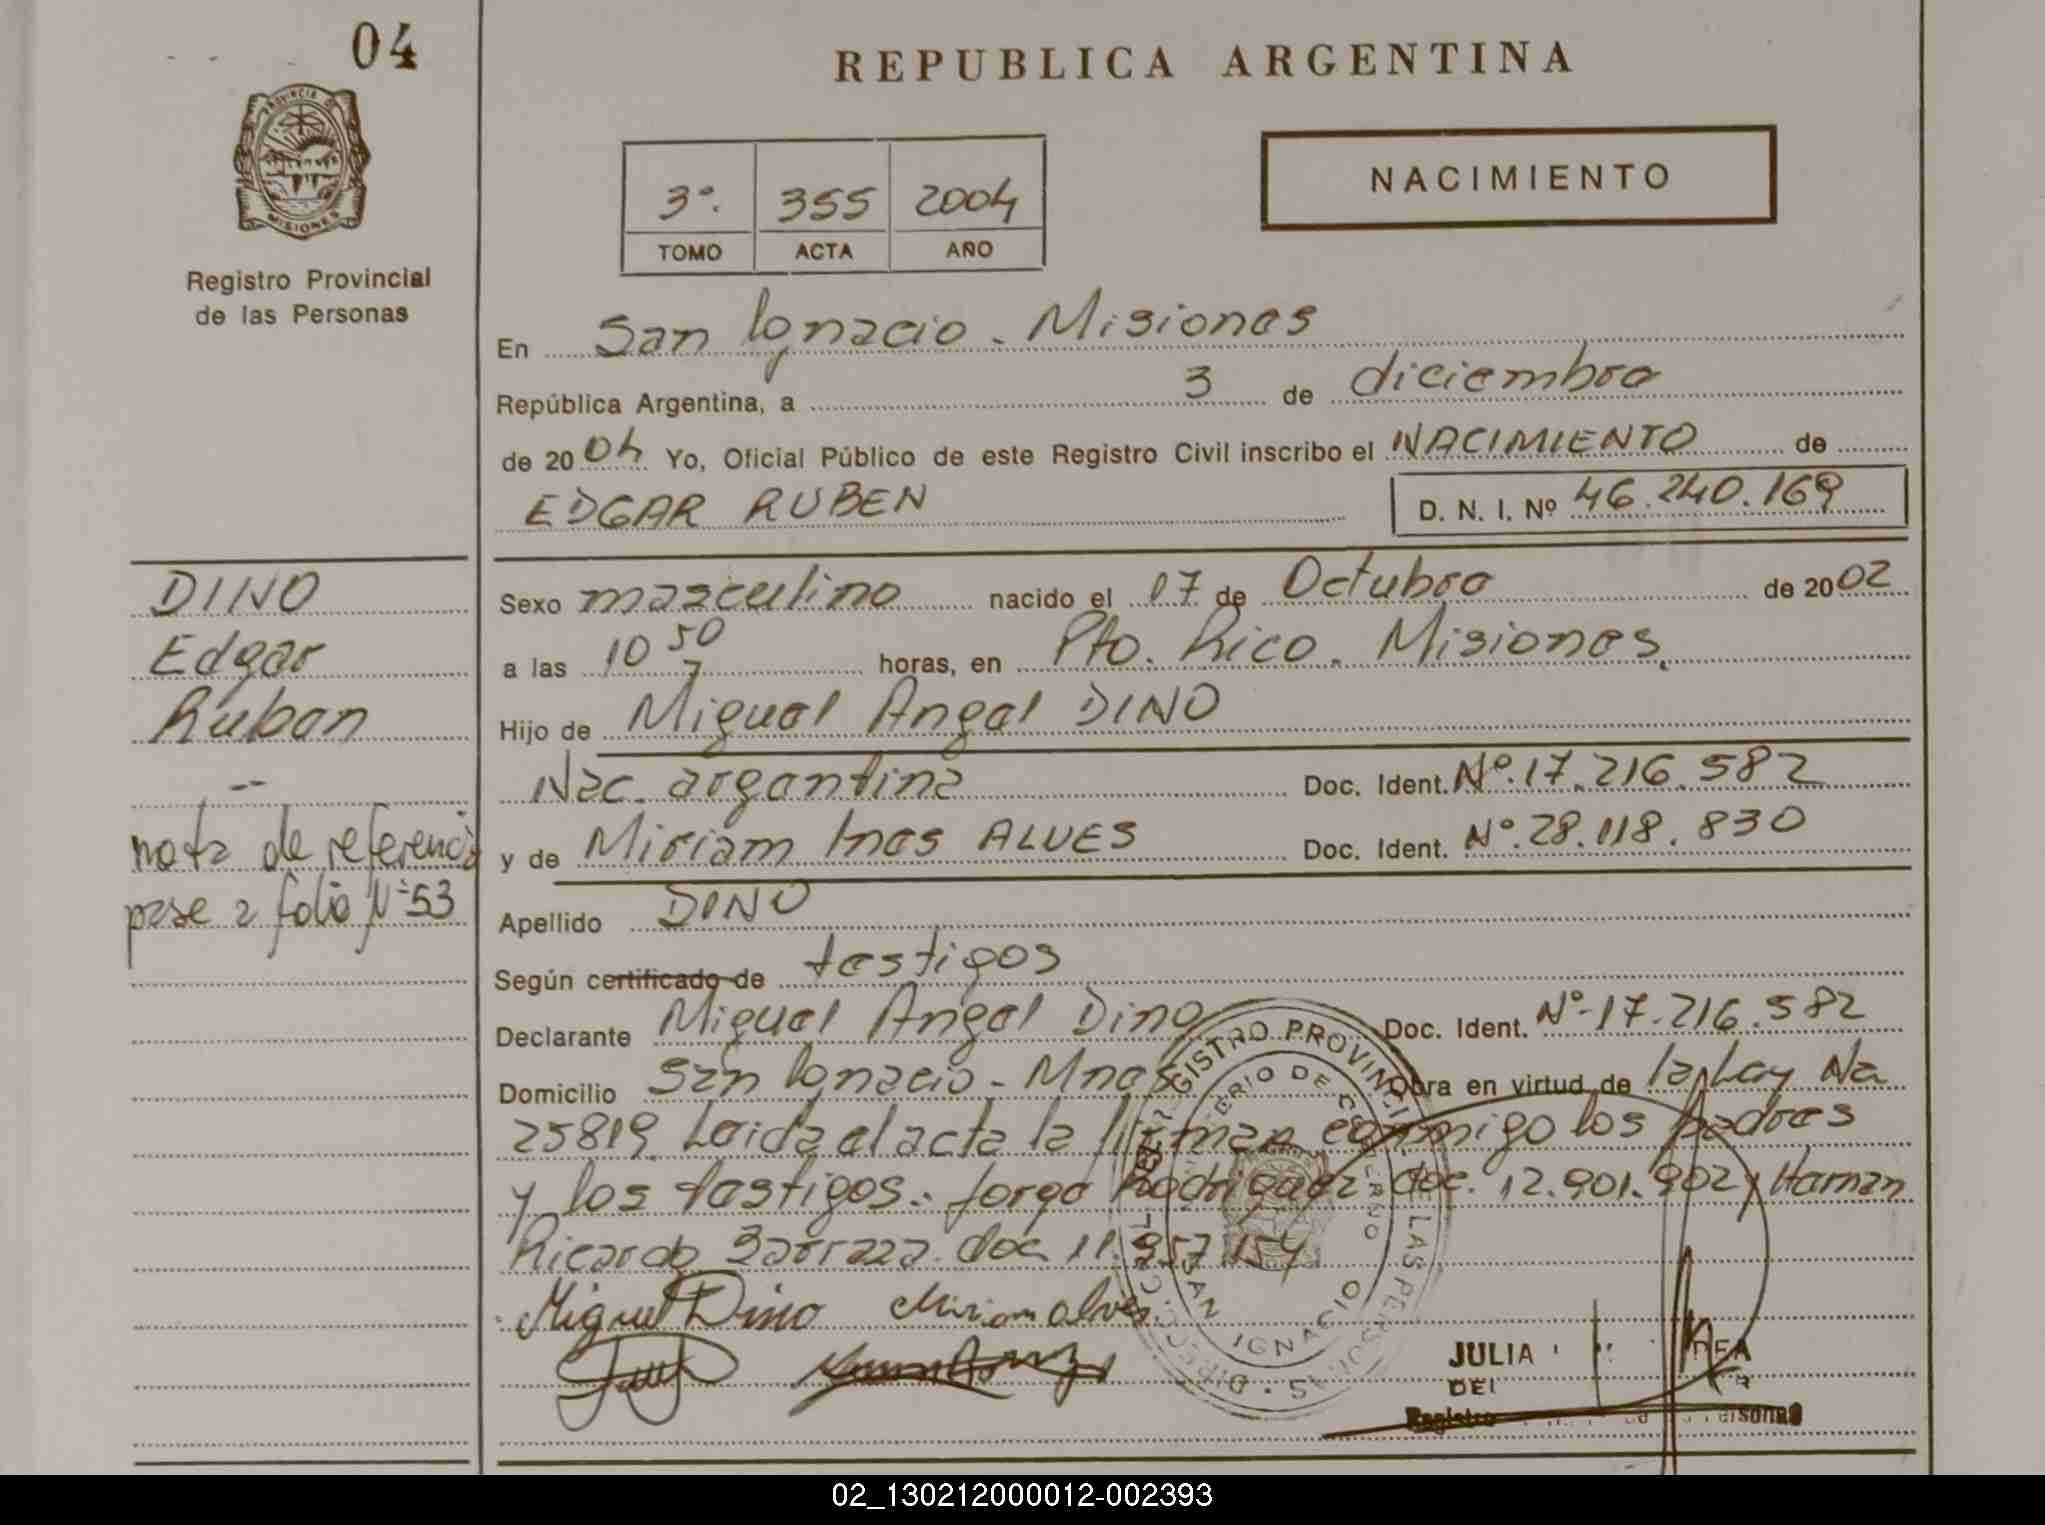 04
REPUBLICA ARGENTINA
PROVINCIA DE
MISIONES
Registro Provincial
de las Personas
3º. 355 2004
TOMO ACTA AÑO
NACIMIENTO
En San Ignacio - Misiones
República Argentina, a 3 de diciembre
de 2004 Yo, Oficial Público de este Registro Civil inscribo el NACIMIENTO de
EDGAR RUBEN D. N. I. Nº 46.240.169
DINO
Edgar
Ruben
nota de referencia
pase a folio Nº 53
Sexo masculino nacido el 17 de Octubre de 2002
a las 10 50 horas, en Pto. Rico. Misiones.
Hijo de Miguel Angel DINO
Nac. argentina Doc. Ident. Nº. 17.216.582
y de Miriam Ines ALVES Doc. Ident. Nº. 28.118.830
Apellido DINO
Según certificado de testigos
Declarante Miguel Angel Dino Doc. Ident. Nº-17.216.582
Domicilio San Ignacio - Mnes Obra en virtud de la Ley Na
25819. Leida el acta la firman conmigo los padres
y los testigos: Jorge Rodriguez doc. 12.901.902 y Hernan
Ricardo Barraza doc 11.957.154
Miguel Dino Miriam alves
SAN IGNACIO
JULIA
DEL
Registro
02_130212000012-002393